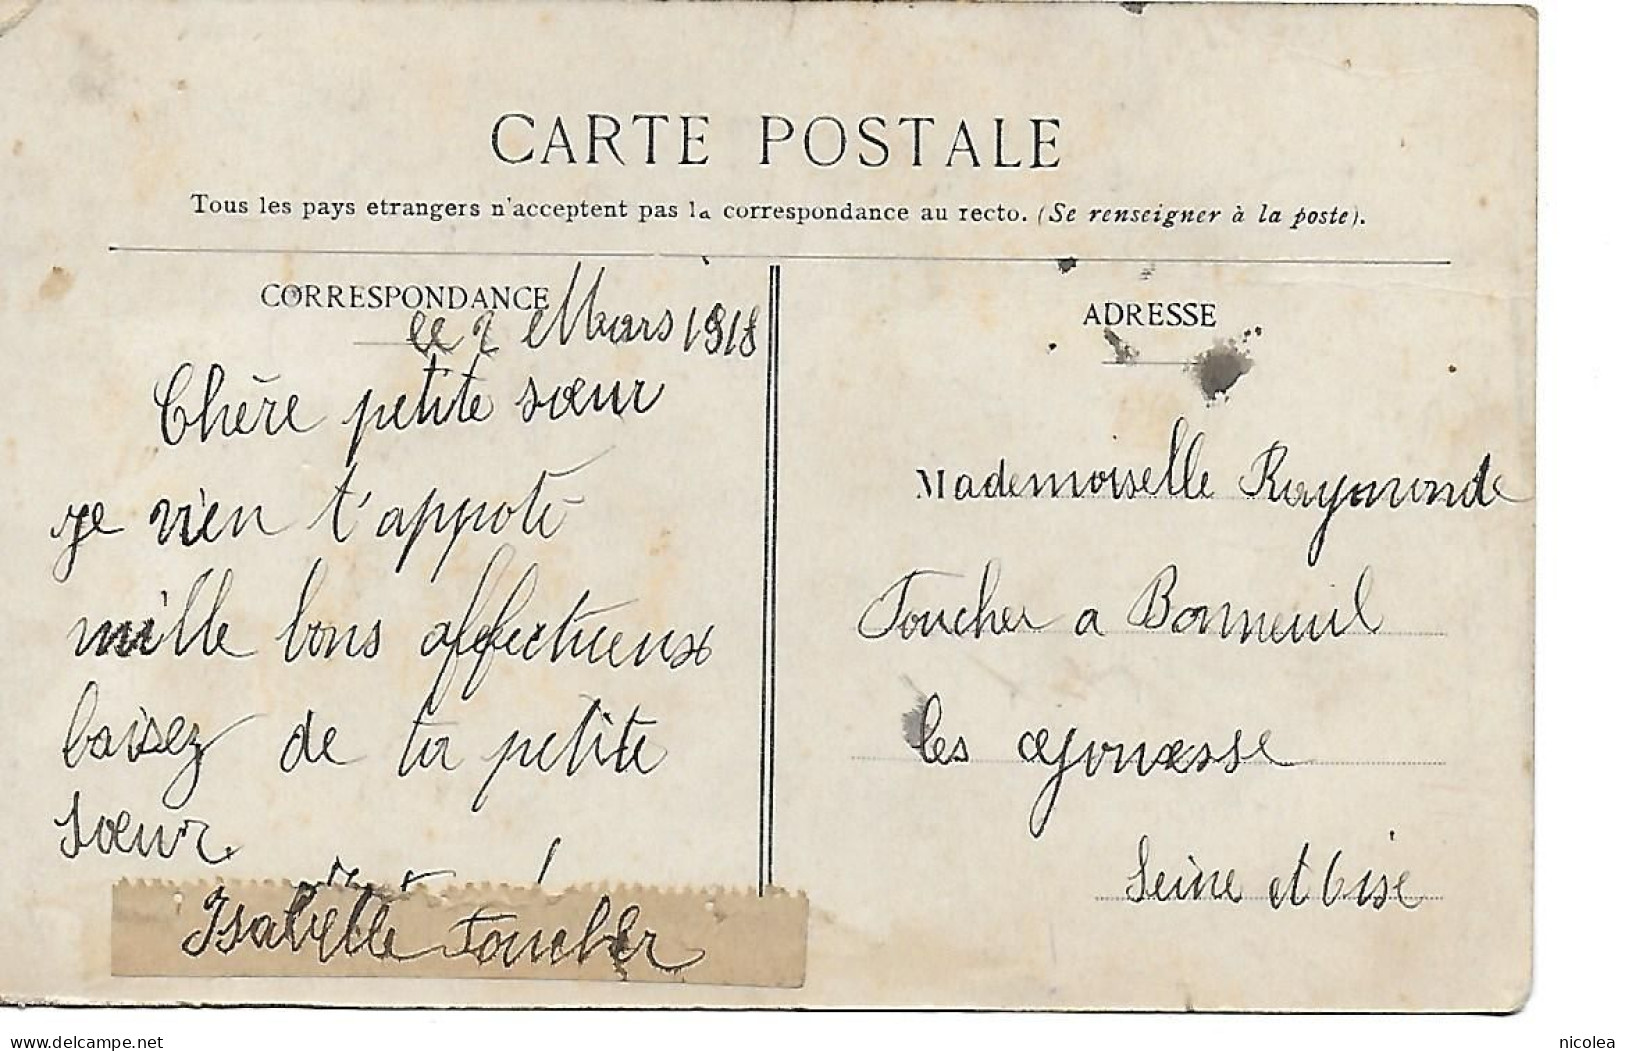 CARTE POSTALE
Tous les pays etrangers n'acceptent pas la correspondance au recto. (Se renseigner à la poste).
CORRESPONDANCE
le 2 Mars 1918
Chère petite sœur
je vien t'appoté
mille bons affectueux
baisez de ta petite
sœur
Isabelle Foucher
ADRESSE
Mademoiselle Raymonde
Foucher a Bonneuil
les
Seine et Oise
delcampe.net
nicolea